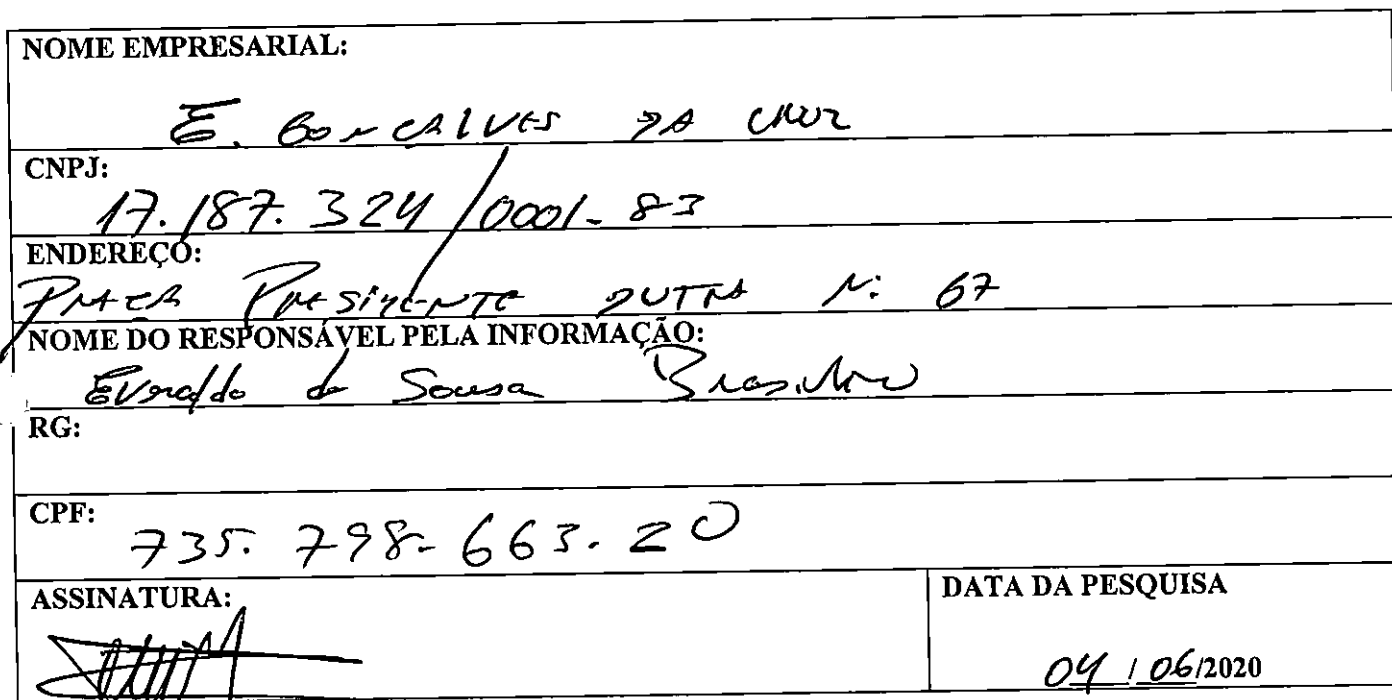 NOME EMPRESARIAL:
E. GONCALVES DA CRUZ
CNPJ:
17.187.324/0001-83
ENDEREÇO:
PRACA PRESIDENTE DUTRA N: 67
NOME DO RESPONSÁVEL PELA INFORMAÇÃO:
Everaldo de Sousa Brasileiro
RG:
CPF:
735.798-663.20
ASSINATURA:
DATA DA PESQUISA
04/06/2020